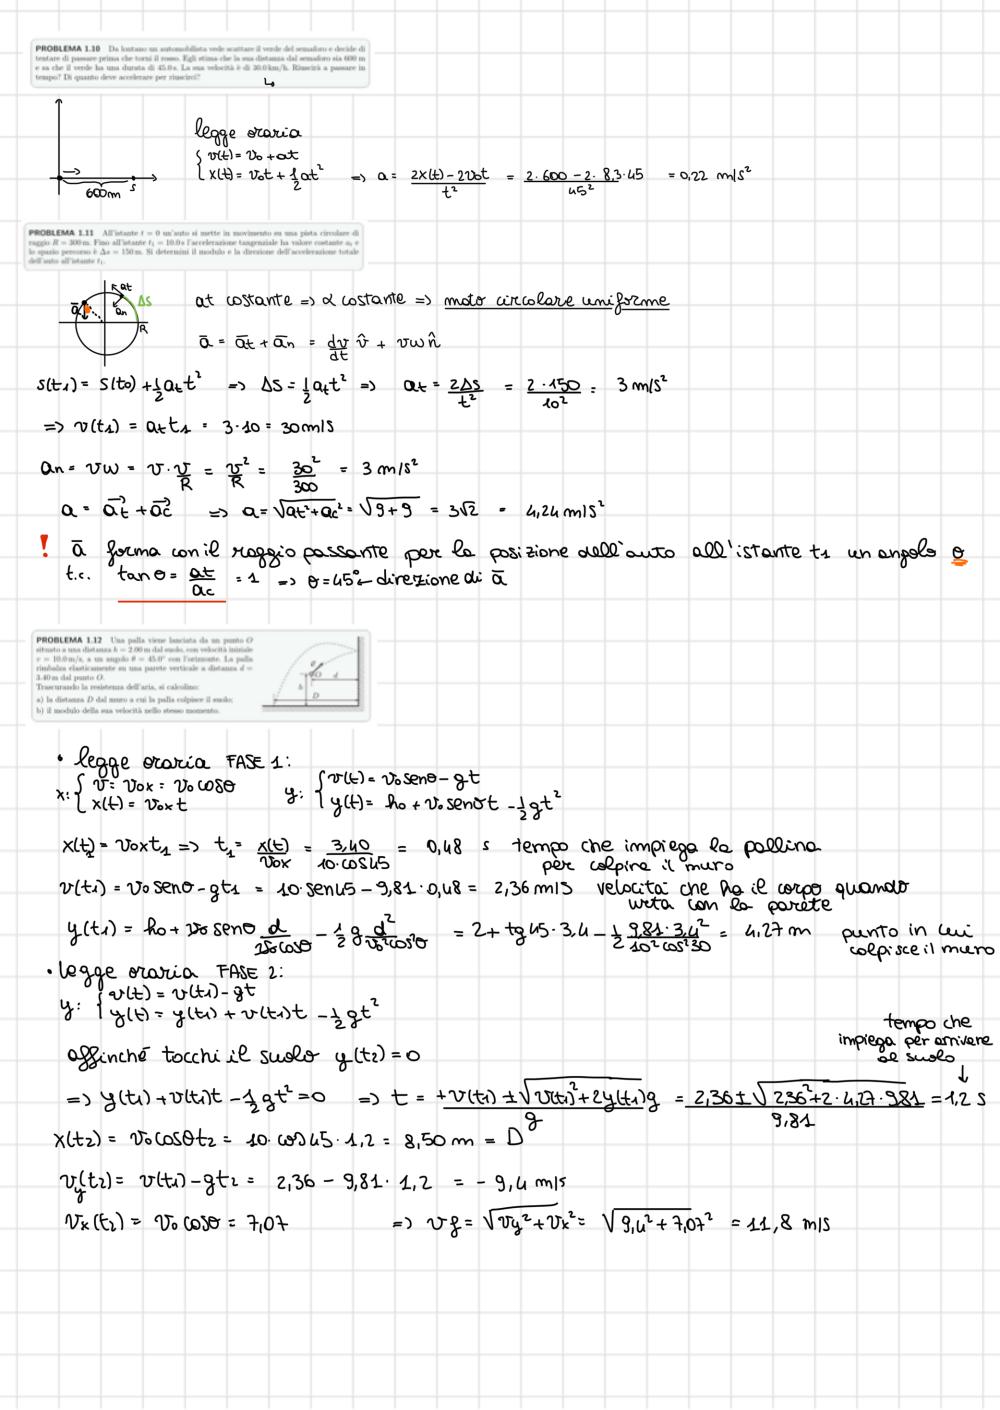 PROBLEMA 1.10 Da lontano un automobilista vede scattare il verde del semaforo e decide di
tentare di passare prima che torni il rosso. Egli stima che la sua distanza dal semaforo sia 600 m
e sa che il verde ha una durata di 45.0 s. La sua velocità è di 30.0 km/h. Riuscirà a passare in
tempo? Di quanto deve accelerare per riuscirci?
legge oraria
v(t) = v0 + at
x(t) = v0t + 1/2 at² => a = (2x(t) - 2v0t)/t² = (2·600 - 2·8,3·45)/45² = 0,22 m/s²
600m
s
PROBLEMA 1.11 All'istante t = 0 un'auto si mette in movimento su una pista circolare di
raggio R = 300 m. Fino all'istante t₁ = 10.0 s l'accelerazione tangenziale ha valore costante aₜ e
lo spazio percorso è Δs = 150 m. Si determini il modulo e la direzione dell'accelerazione totale
dell'auto all'istante t₁.
at
ΔS
ā
an
R
at costante => α costante => moto circolare uniforme
ā = āt + ān = dv/dt v̂ + vw n̂
s(t1) = s(t0) + 1/2 at t² => Δs = 1/2 at t² => at = 2Δs/t² = 2·150/10² = 3 m/s²
=> v(t1) = at t1 = 3·10 = 30 m/s
an = vw = v·v/R = v²/R = 30²/300 = 3 m/s²
a = at + ac => a = √(at² + ac²) = √(9+9) = 3√2 = 4,24 m/s²
! ā forma con il raggio passante per la posizione dell'auto all'istante t1 un angolo θ
t.c. tan θ = at/ac = 1 => θ = 45° ← direzione di ā
PROBLEMA 1.12 Una palla viene lanciata da un punto O
situato a una distanza h = 2.00 m dal suolo, con velocità iniziale
v = 10.0 m/s, a un angolo θ = 45.0° con l'orizzonte. La palla
rimbalza elasticamente su una parete verticale a distanza d =
3.40 m dal punto O.
Trascurando la resistenza dell'aria, si calcolino:
a) la distanza D dal muro a cui la palla colpisce il suolo;
b) il modulo della sua velocità nello stesso momento.
O
d
h
D
• legge oraria FASE 1:
x: { v = v0x = v0 cosθ
x(t) = v0x t
y: { v(t) = v0 senθ - gt
y(t) = h0 + v0 senθt - 1/2 gt²
x(t1) = v0x t1 => t1 = x(t)/v0x = 3,40/(10·cos45) = 0,48 s tempo che impiega la pallina
per colpire il muro
v(t1) = v0 senθ - gt1 = 10·sen45 - 9,81·0,48 = 2,36 m/s velocità che ha il corpo quando
urta con la parete
y(t1) = h0 + v0 senθ d/(v0 cosθ) - 1/2 g d²/(v0² cos²θ) = 2 + tg45·3,4 - 1/2 9,81·3,4²/(10² cos²30) = 4,27 m punto in cui
colpisce il muro
• legge oraria FASE 2:
y: { v(t) = v(t1) - gt
y(t) = y(t1) + v(t1)t - 1/2 gt²
affinché tocchi il suolo y(t2) = 0
tempo che
impiega per arrivare
al suolo
=> y(t1) + v(t1)t - 1/2 gt² = 0 => t = (+v(t1) ± √(v(t1)² + 2y(t1)g))/g = (2,36 ± √(2,36² + 2·4,27·9,81))/9,81 = 1,2 s
x(t2) = v0 cosθ t2 = 10·cos45·1,2 = 8,50 m = D
vy(t2) = v(t1) - gt2 = 2,36 - 9,81·1,2 = -9,4 m/s
vx(t2) = v0 cosθ = 7,07 => vf = √(vy² + vx²) = √(9,4² + 7,07²) = 11,8 m/s